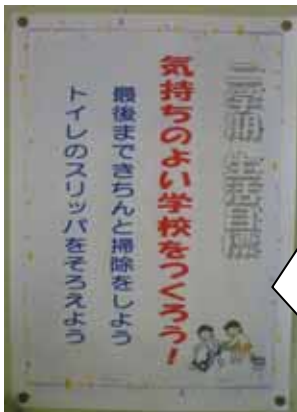 二学期 生活目標
気持ちのよい学校をつくろう！
最後まできちんと掃除をしよう
トイレのスリッパをそろえよう